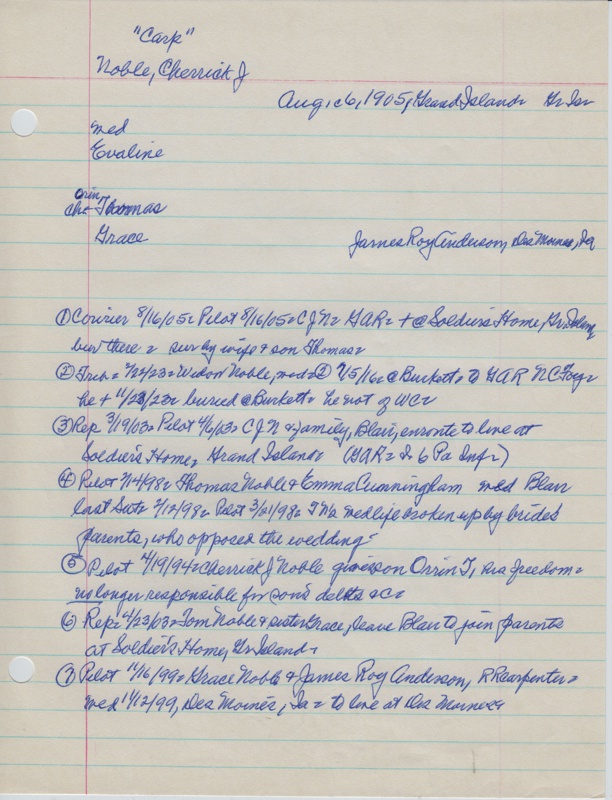 "Carp"
Noble, Cherrick J
Aug, 6, 1905, Grand Island = Gr Is =
med
Evaline
Orin
Ch = Thomas
Grace
James Roy Anderson, Des Moines, Ia
① Courier 8/16/05 = Pilot 8/16/05 = C J N = GAR = + @ Soldier's Home, Gr Island
bur there = sur by wife + son Thomas =
② = Widow Noble, med = ② 7/5/16 = @ Burkett = to GAR NC
he + 11/23/23 = buried @ Burkett = he not of WC =
③ Rep 3/19/03 = Pilot = C J N + family, Blair, enroute to live at
Soldier's Home, Grand Island = (GAR = 6 Pa Inf =)
④ Pilot 7/14/98 = Thomas Noble + Emma Cunningham med Blair
last Sat = 2/12/98 = Pilot 3/21/98 = med life broken up by bride's
parents, who opposed the wedding =
⑤ Pilot 4/19/94 = Cherrick J Noble gives son Orrin T, his freedom =
no longer responsible for son's debts =
⑥ Rep = 4/23/03 = Tom Noble + sister Grace, leave Blair to join parents
at Soldier's Home, Gr Island =
⑦ Pilot 11/16/99 = Grace Noble + James Roy Anderson, RR carpenter =
med 11/12/99, Des Moines, Ia = to live at Des Moines =